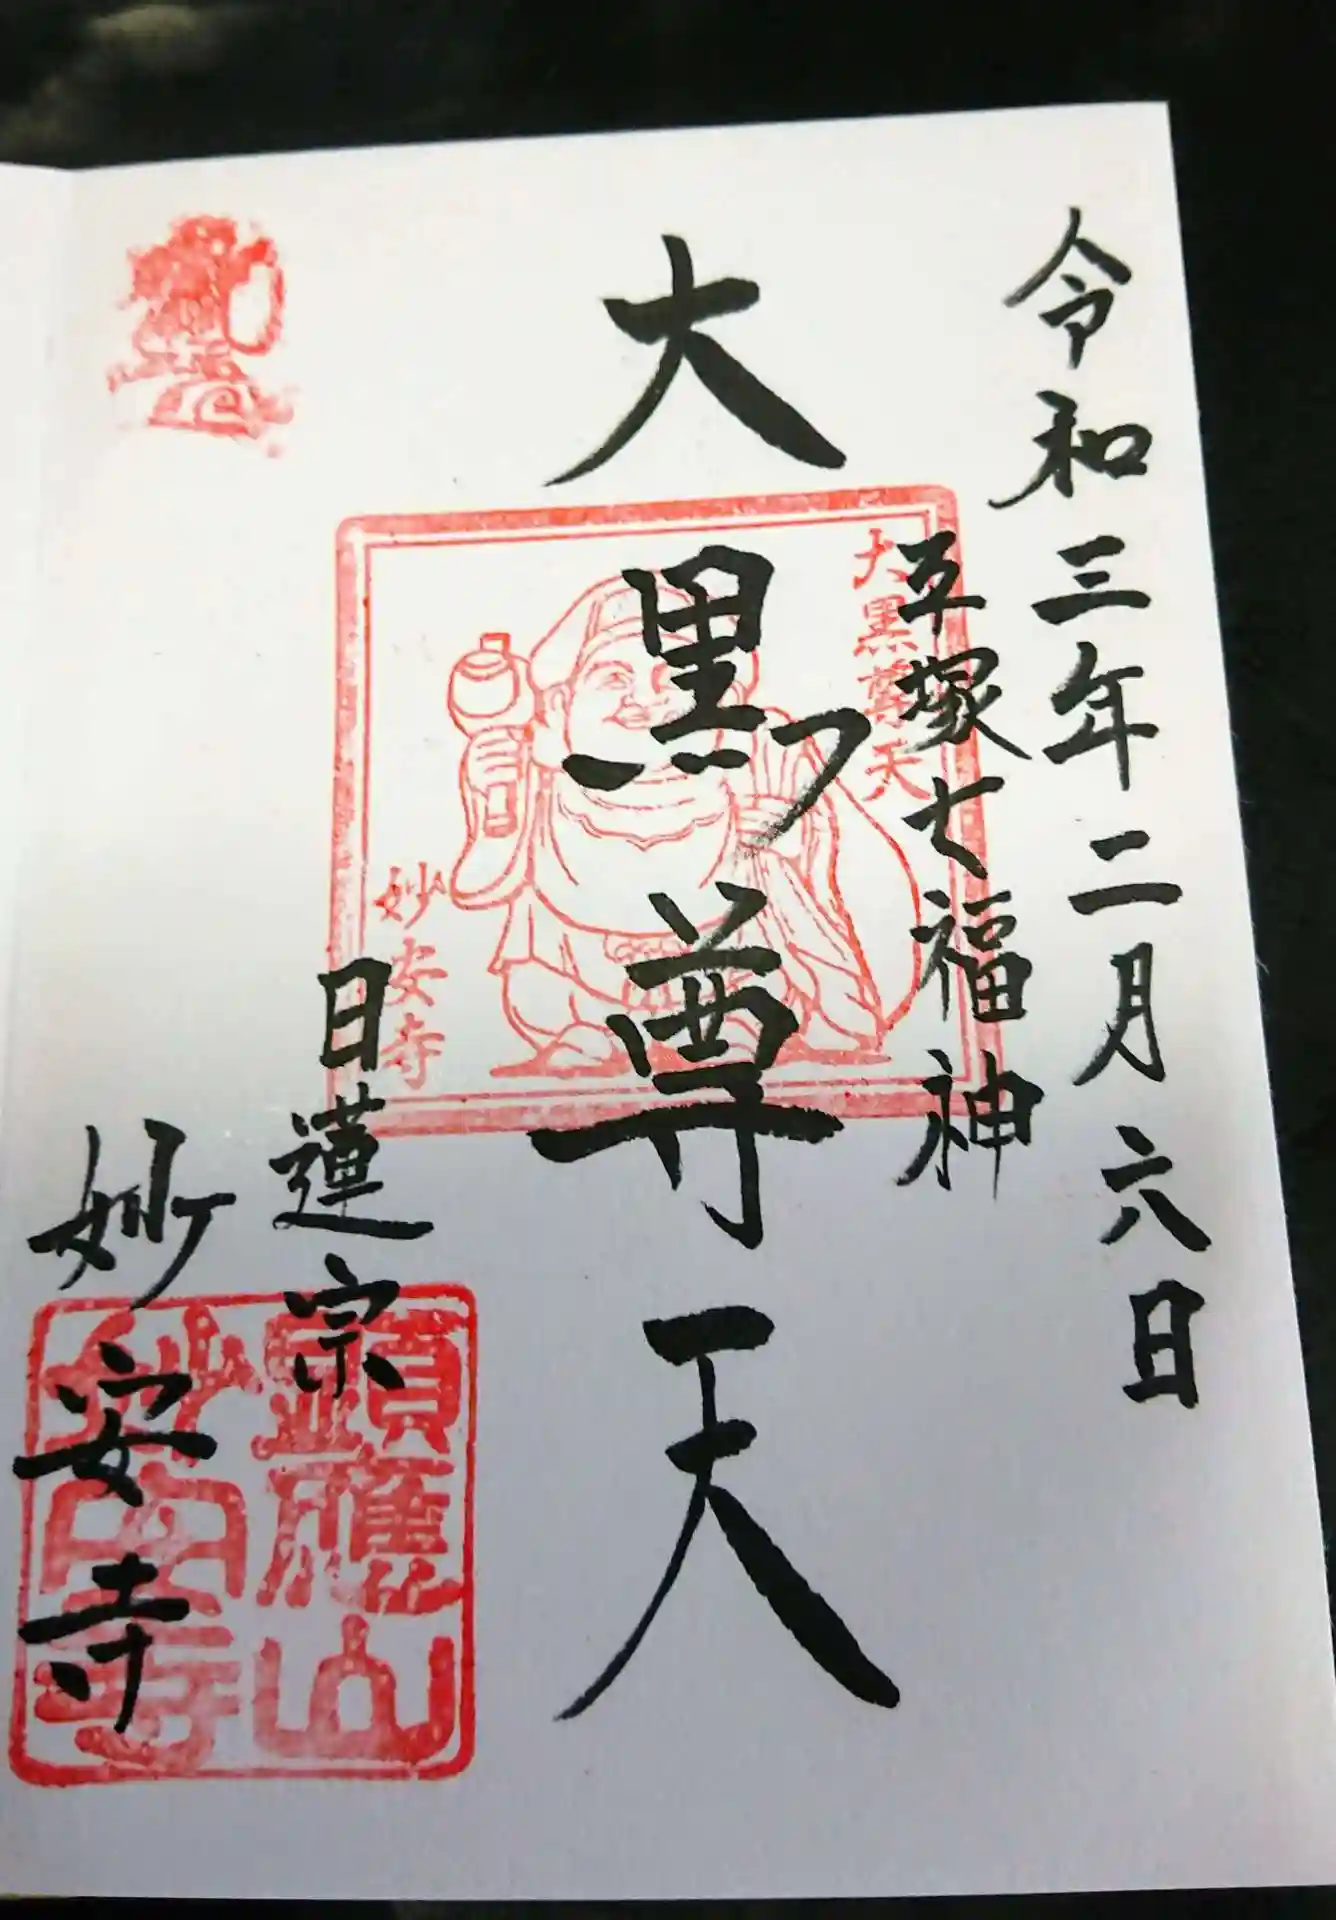 令和三年二月六日
平塚七福神
大黒尊天
大黒尊天
妙安寺
日蓮宗
妙安寺
顕應山
妙安寺